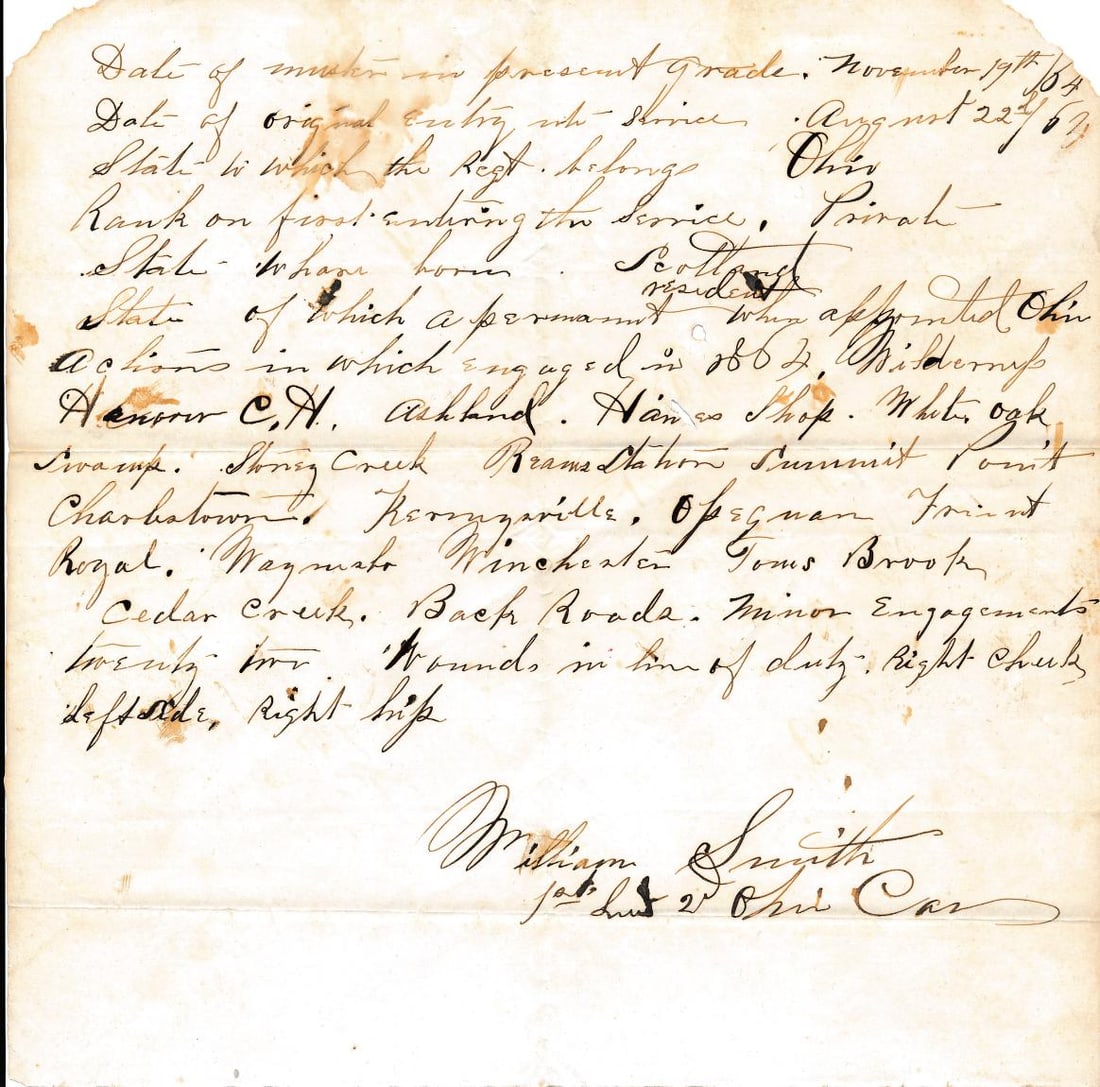 Date of muster in present grade. November 19th/64
Date of original entry into service . August 22d/62
State to which the Regt. belongs Ohio
Rank on first entering the Service. Private
State whare born . Scotland
resident
State of which a permanant when appointed Ohio
Actions in which engaged in 1864, Wilderness
Hanover C.H. Ashland. Hawes Shop. White oak
Swamp. Stoney Creek Reams Station Summit Point
Charlestown. Kernysville. Opequan Frunt
Royal. Waynesbo Winchester Toms Brook
Cedar Creek. Back Roads. Minor Engagements
twenty two Wounds in line of duty. Right Cheek
Left side, Right hip
William Smith
1st Lieut 2d Ohio Cav